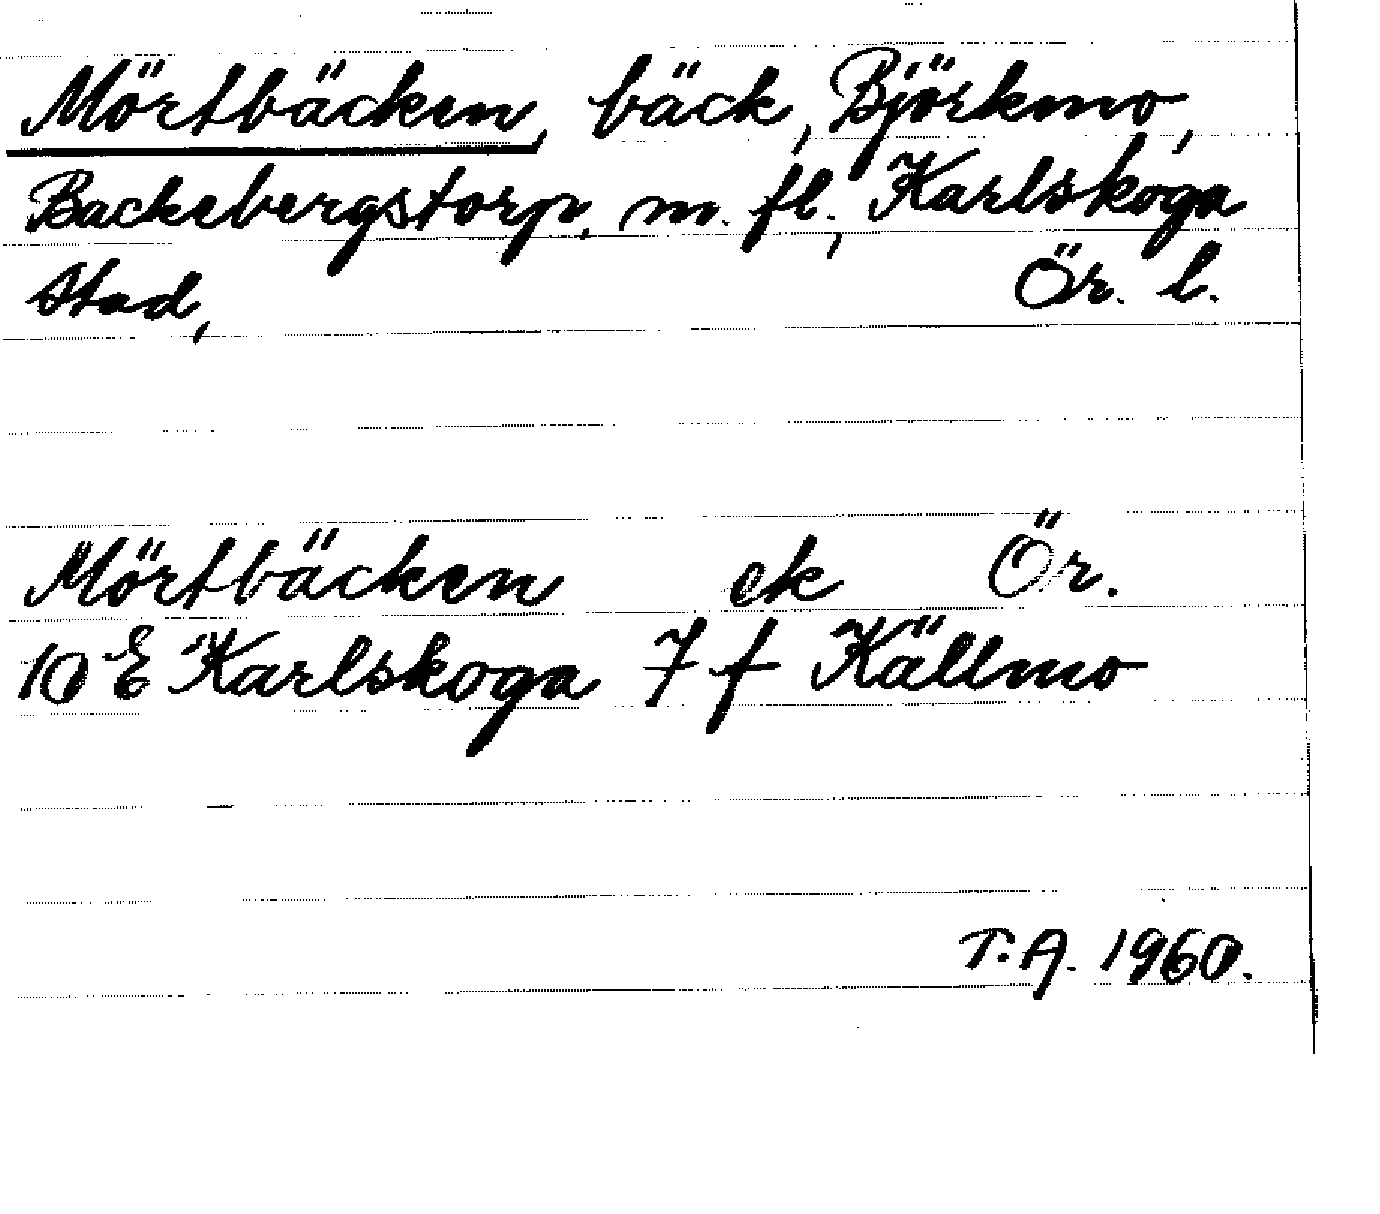 Mörtbäcken, bäck, Björkmo,
Backebergstorp, m. fl., Karlskoga
Stad, Ör. l.
Mörtbäcken ek Ör.
10 E Karlskoga 7 f Källmo
T.A. 1960.